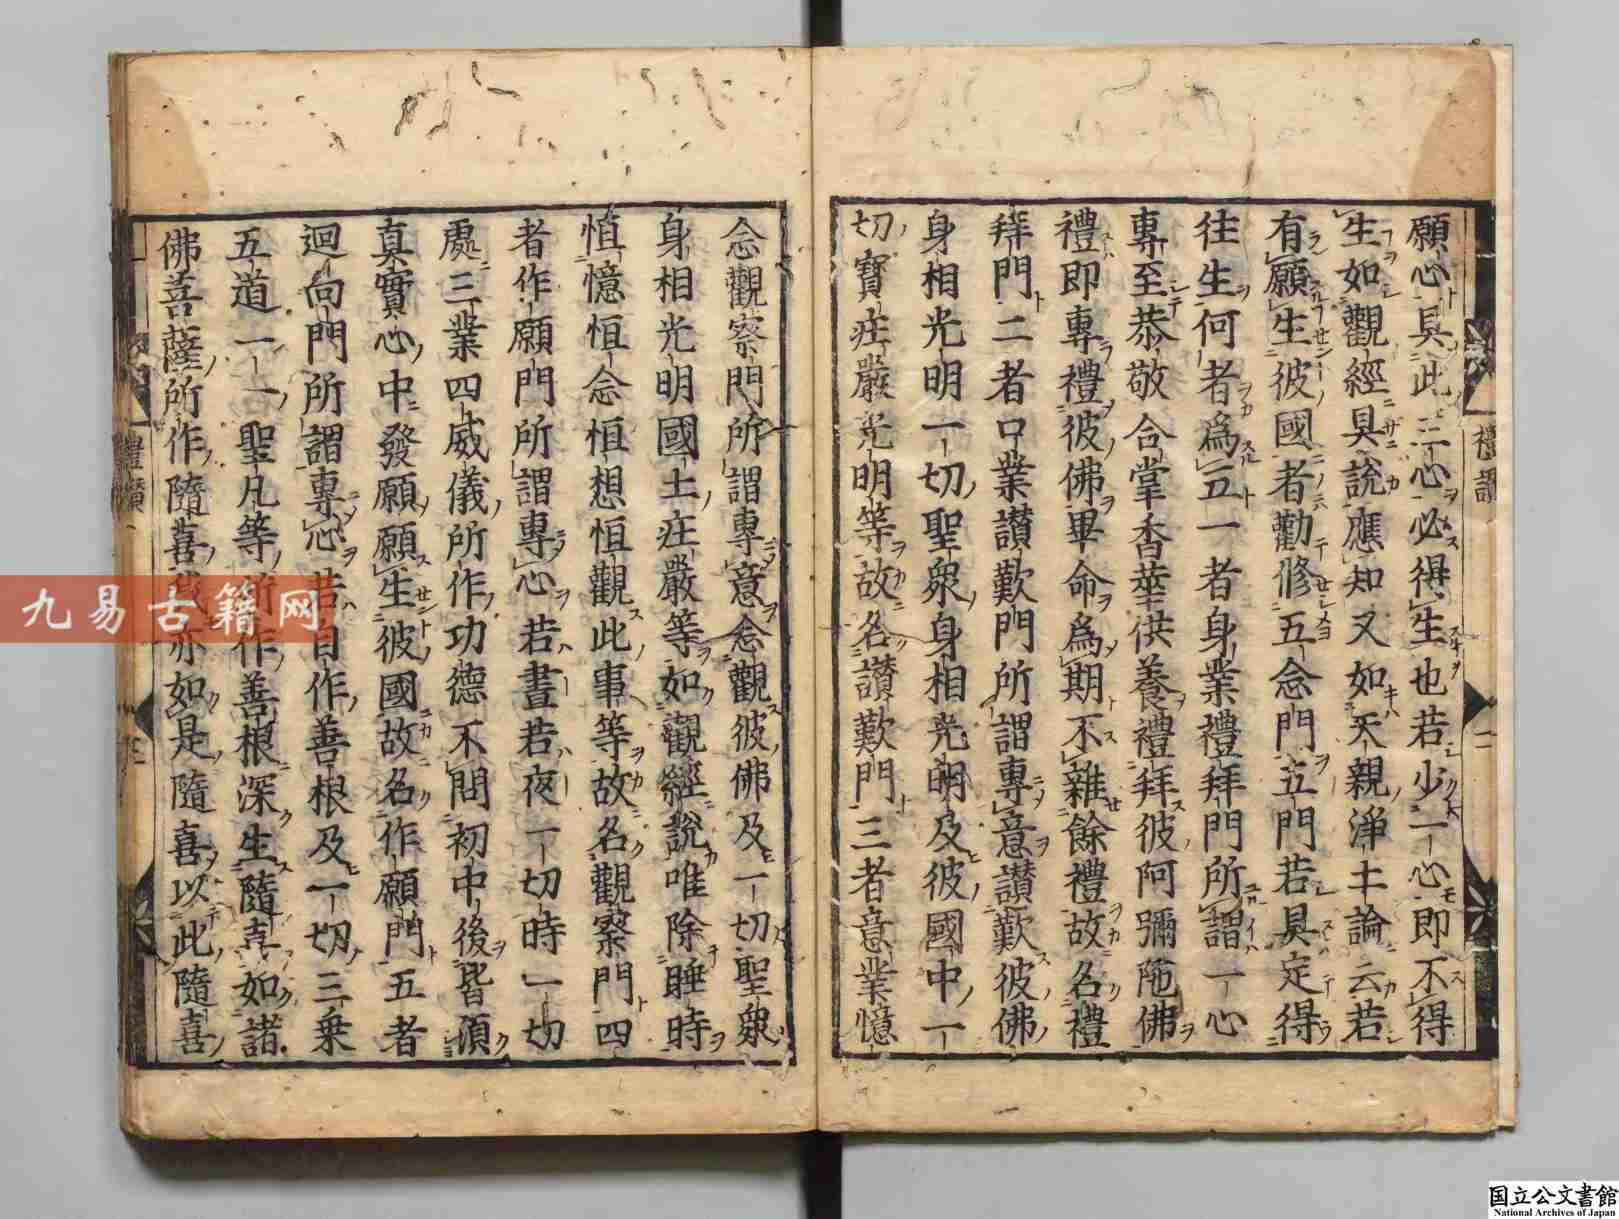 願心具此三心必得生也若少一心即不得
生如觀經具説應知又如天親淨土論云若
有願生彼國者勸修五念門五門若具定得
往生何者爲五一者身業禮拜門所謂一心
專至恭敬合掌香華供養禮拜彼阿彌陁佛
禮即專禮彼佛畢命爲期不雜餘禮故名禮
拜門二者口業讃歎門所謂專意讃歎彼佛
身相光明一切聖衆身相光明及彼國中一
切寳莊嚴光明等故名讃歎門三者意業憶
念觀察門所謂專意念觀彼佛及一切聖衆
身相光明國土莊嚴等如觀經説唯除睡時
恒憶恒念恒想恒觀此事等故名觀察門四
者作願門所謂專心若晝若夜一切時一切
處三業四威儀所作功德不問初中後皆須
真實心中發願願生彼國故名作願門五者
迴向門所謂專心若自作善根及一切三乗
五道一一聖凡等所作善根深生隨喜如諸
佛菩薩所作隨喜我亦如是隨喜以此隨喜
禮讃
禮讃
九易古籍网
国立公文書館
National Archives of Japan